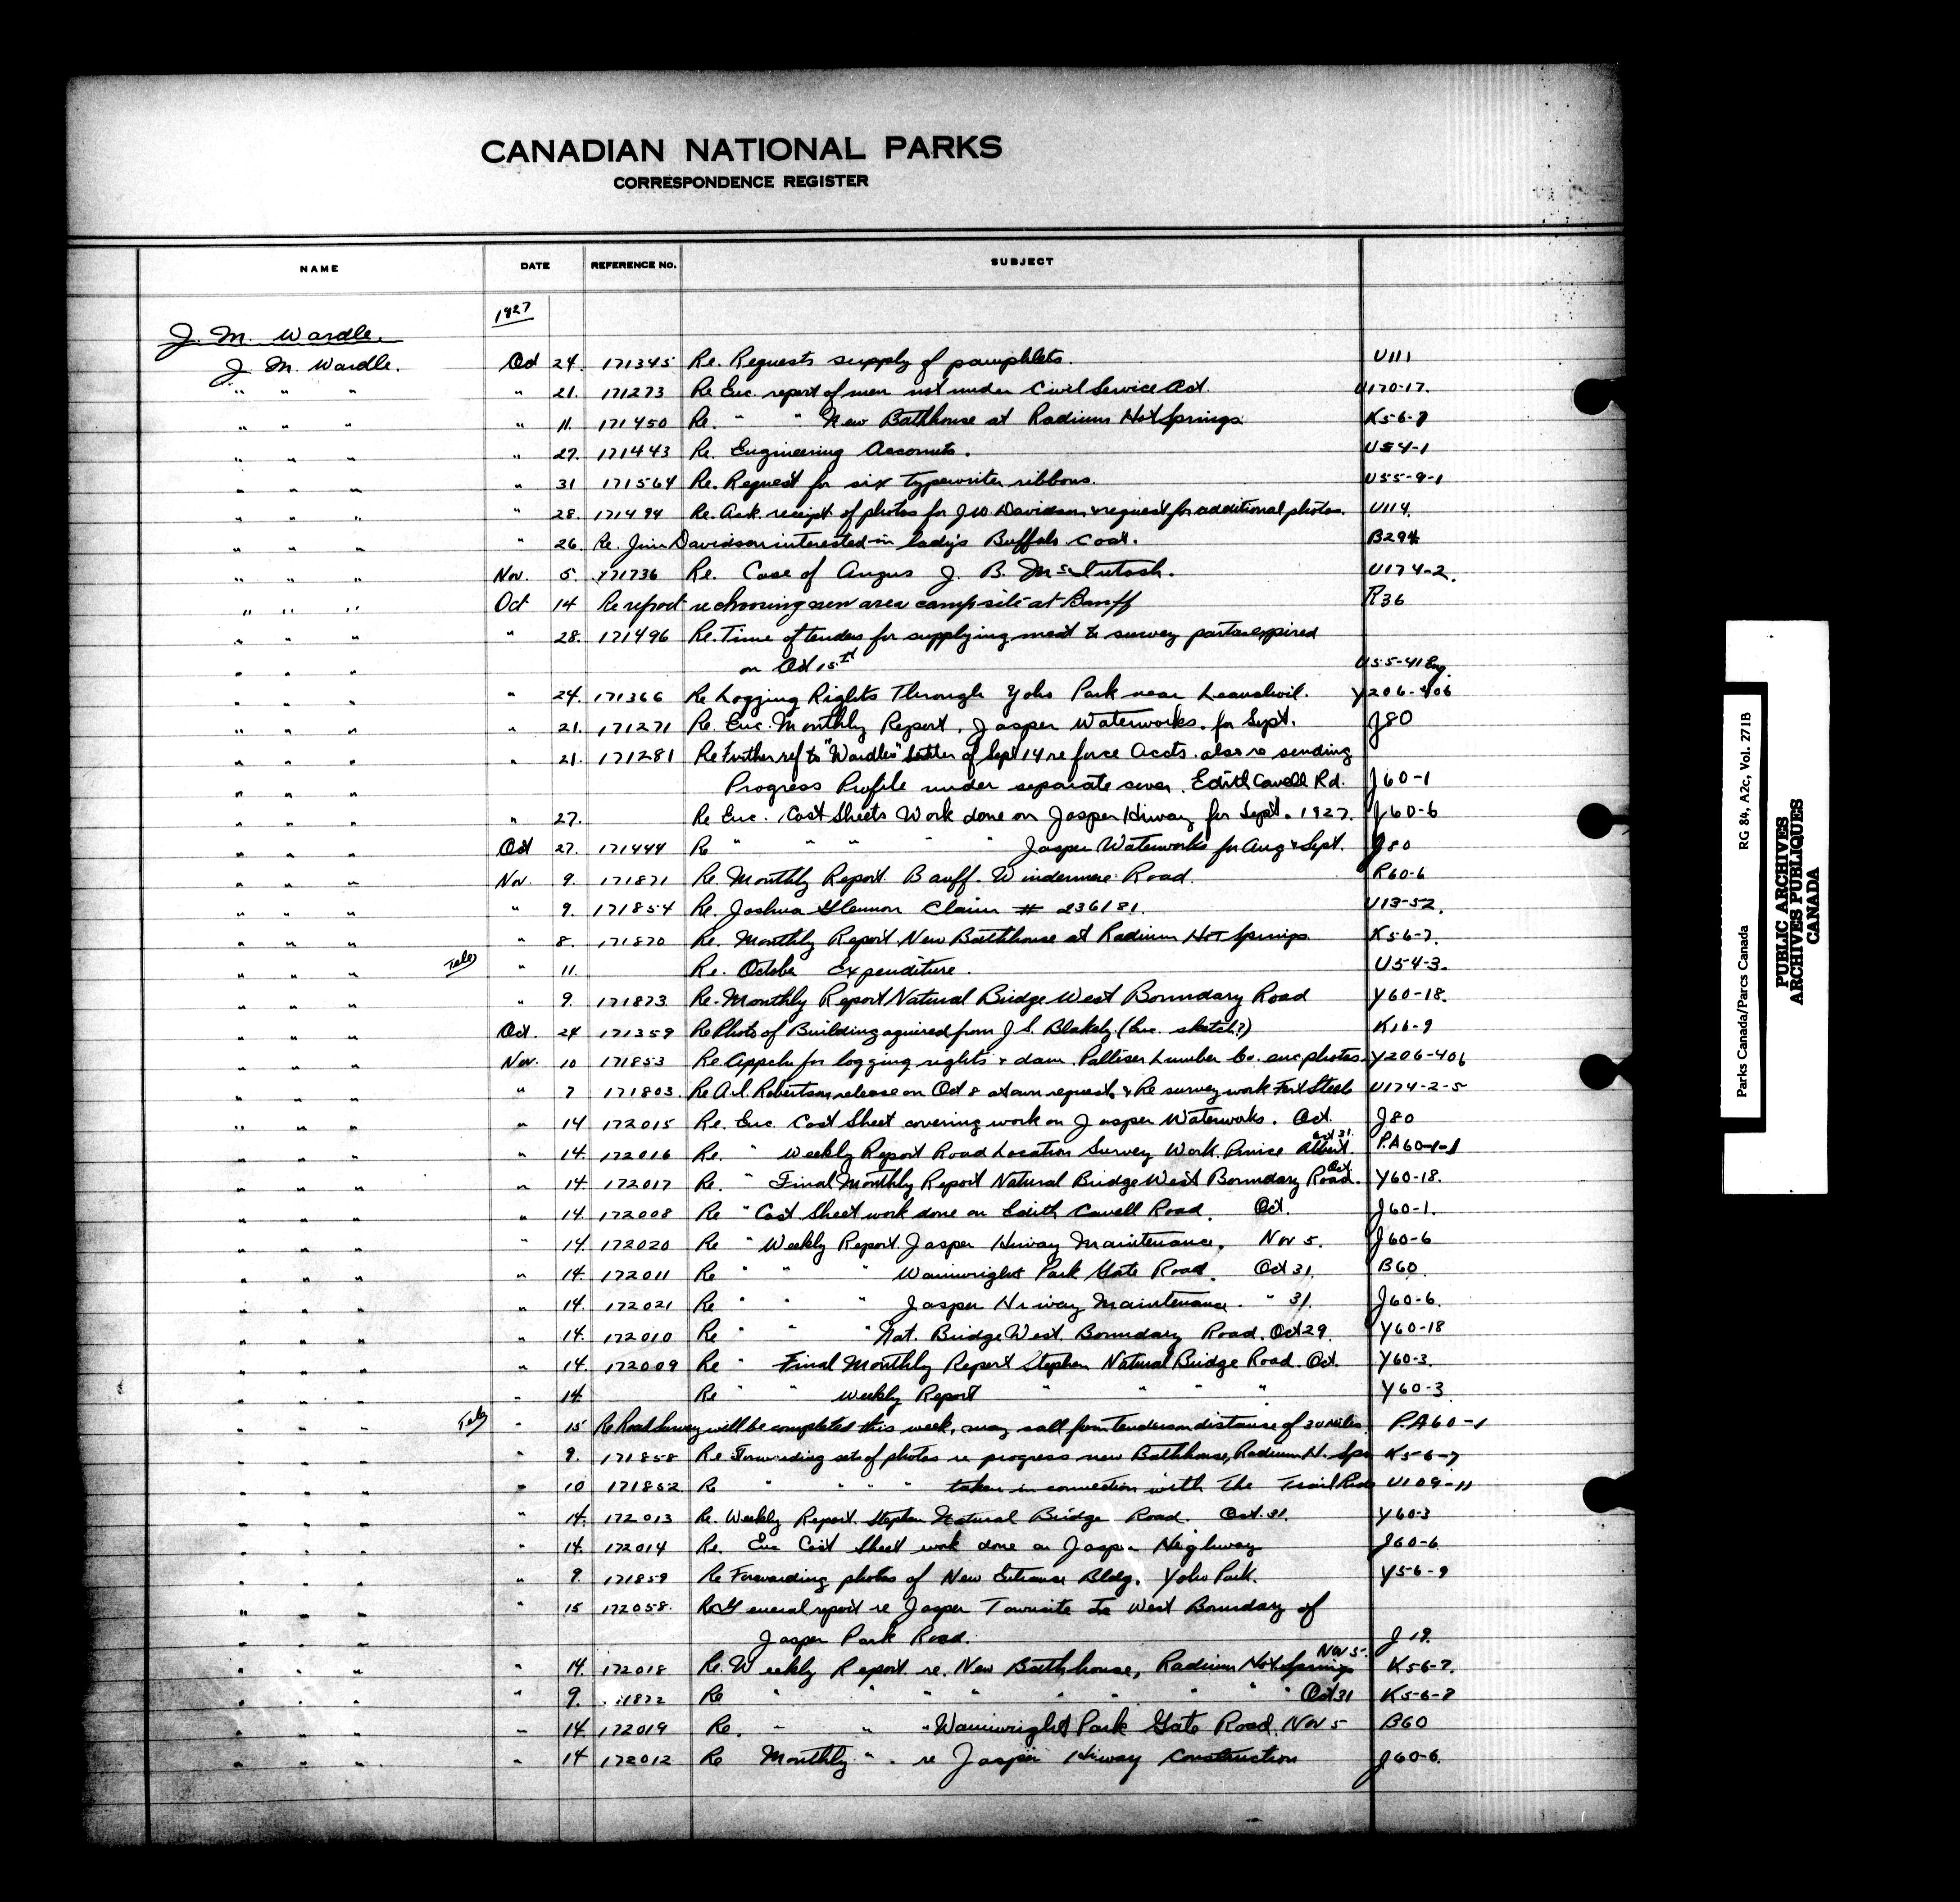 CANADIAN NATIONAL PARKS
CORRESPONDENCE REGISTER
NAME DATE REFERENCE No. SUBJECT
1927
J. M. Wardle.
J. M. Wardle. Oct 24. 171345 Re. Requests supply of pamphlets. U111
" " " " 21. 171273 Re Enc. report of men not under Civil Service Act. U170-17.
" " " " 11. 171450 Re. " " New Bathhouse at Radium Hot Springs. K56-7
" " " " 27. 171443 Re. Engineering Accounts. U54-1
" " " " 31 171564 Re. Request for six typewriter ribbons. U55-9-1
" " " " 28. 171494 Re. Ack. receipt of photos for J.W. Davidson & request for additional photos. U114
" " " " 26. Re. Jim Davidson interested in lady's Buffalo Coat. B294
" " " Nov. 5. 171736 Re. Case of Angus J. B. McIntosh. U174-2.
" " " Oct 14 Re report re choosing new area campsite at Banff R36
" " " " 28. 171496 Re. Time of tenders for supplying meat to survey parties expired
" " " on Oct 15th U55-41 Eng.
" " " " 24. 171366 Re Logging Rights Through Yoho Park near Leanchoil. Y206-406
" " " " 21. 171271 Re. Enc. Monthly Report. Jasper Waterworks. for Sept. J80
" " " " 21. 171281 Re Further ref to "Wardles" letter of Sept 14 re force Accts. also re sending
" " " Progress Profile under separate cover. Edith Cavell Rd. J60-1
" " " " 27. Re Enc. Cost Sheets Work done on Jasper Hiway for Sept. 1927. J60-6
" " " Oct 27. 171444 Re " " " " " Jasper Waterworks for Aug & Sept. J80
" " " Nov. 9. 171871 Re. Monthly Report. Banff-Windermere Road. R60-6
" " " " 9. 171854 Re. Joshua Glennon Claim # 236181. U13-52.
" " " " 8. 171870 Re. Monthly Report New Bathhouse at Radium Hot Springs K56-7.
" " " Teleg " 11. Re. October Expenditure. U54-3.
" " " " 9. 171873 Re. Monthly Report Natural Bridge West Boundary Road Y60-18.
" " " Oct. 24 171359 Re Photo of Building aquired from J. S. Blakely. (Enc. sketch?) K16-9
" " " Nov. 10 171853 Re Appeln for logging rights & dam. Palliser Lumber Co. enc photos. Y206-406
" " " " 7 171803. Re A.L. Robertson, release on Oct 8 at own request, & Re survey work Fort Steele U174-2-5
" " " " 14 172015 Re. Enc Cost Sheet covering work on Jasper Waterworks. Oct. J80
" " " " 14. 172016 Re. " Weekly Report Road Location Survey Work. Prince Albert. Oct 31. P.A60-1-1
" " " " 14. 172017 Re. " Final Monthly Report Natural Bridge West Boundary Road. Oct. Y60-18.
" " " " 14. 172008 Re " Cost Sheet work done on Edith Cavell Road. Oct. J60-1.
" " " " 14. 172020 Re " Weekly Report. Jasper Hiway Maintenance. Nov 5. J60-6
" " " " 14. 172011 Re " " " Wainwright Park Gate Road. Oct 31. B60
" " " " 14. 172021 Re " " " Jasper Hiway Maintenance. " 31. J60-6.
" " " " 14. 172010 Re " " " Nat. Bridge West. Boundary Road. Oct 29. Y60-18
" " " " 14. 172009 Re " Final Monthly Report Stephen Natural Bridge Road. Oct. Y60-3.
" " " " 14. Re " " Weekly Report " " " " Y60-3
" " " Teleg " 15 Re Road Survey will be completed this week, may call for Tenders on distance of 30 Miles. P.A60-1
" " " " 9. 171858 Re Forwarding set of photos re progress new Bathhouse, Radium H. Spgs K56-7
" " " " 10 171852 Re " " " " taken in connection with The Trail Ride U109-11
" " " " 14. 172013 Re. Weekly Report. Stephen Natural Bridge Road. Oct. 31. Y60-3
" " " " 14. 172014 Re. Enc Cost Sheet work done on Jasper Highway J60-6.
" " " " 9. 171859 Re Forwarding photos of New Entrance Bldg. Yoho Park. Y56-9
" " " " 15 172058. Re General report re Jasper Townsite to West Boundary of
" " " Jasper Park Road. J19.
" " " " 14. 172018 Re. Weekly Report re. New Bathhouse, Radium Hot Springs Nov 5. K56-7.
" " " " 9. 1872 Re " " " " " " " " Oct 31 K56-7
" " " " 14. 172019 Re. " " " Wainwright Park Gate Road. Nov 5 B60
" " " " 14 172012 Re Monthly " . re Jasper Hiway Construction J60-6.
Parks Canada/Parcs Canada RG 84, A2c, Vol. 271B
PUBLIC ARCHIVES
ARCHIVES PUBLIQUES
CANADA